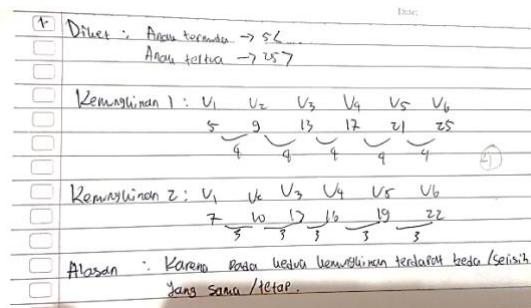 1.
Diket : Anak termuda → 5 < ...
Anak tertua → 25 >
Kemungkinan 1 : U1 U2 U3 U4 U5 U6
5 9 13 17 21 25
4 4 4 4 4
Kemungkinan 2 : U1 U2 U3 U4 U5 U6
7 10 13 16 19 22
3 3 3 3 3
Alasan : Karena pada kedua kemungkinan terdapat beda / selisih
yang sama / tetap.